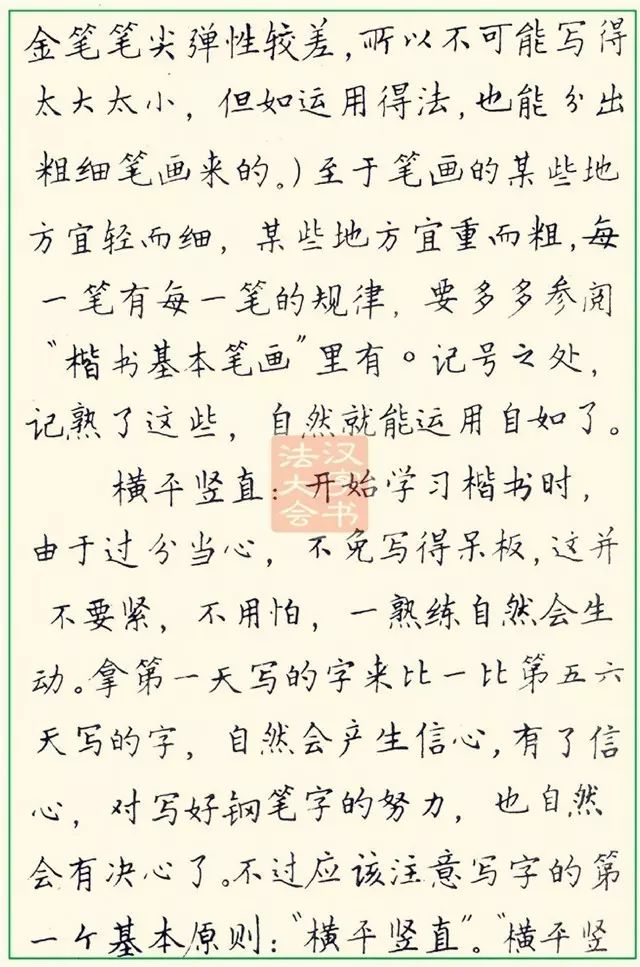 金笔笔尖弹性较差,所以不可能写得
太大太小，但如运用得法,也能分出
粗细笔画来的。)至于笔画的某些地
方宜轻而细，某些地方宜重而粗,每
一笔有每一笔的规律，要多多参阅
“楷书基本笔画”里有。记号之处，
记熟了这些，自然就能运用自如了。
横平竖直：开始学习楷书时，
由于过分当心，不免写得呆板,这并
不要紧，不用怕，一熟练自然会生
动。拿第一天写的字来比一比第五六
天写的字，自然会产生信心,有了信
心，对写好钢笔字的努力，也自然
会有决心了。不过应该注意写字的第
一个基本原则：“横平竖直”。“横平竖
汉字书
法大会